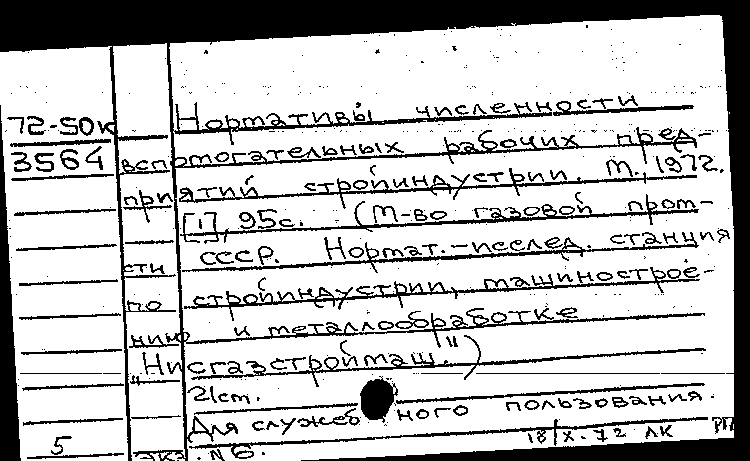 72-50к
3564
Нормативы численности
вспомогательных рабочих пред-
приятий стройиндустрии. М., 1972.
[1], 95с. (М-во газовой пром-
сти СССР. Нормат.-исслед. станция
по стройиндустрии, машинострое-
нию и металлообработке
„Нисгазстроймаш.")
21см.
Для служебного пользования.
18/X-72 ЛК РП
5 Экз. N6.